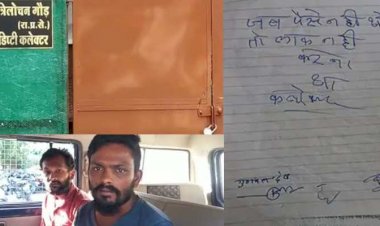 त्रिलोचन गौड़
(रा.प्र.से.)
डिप्टी कलेक्टर
जब पैसे नही थे
तो लाक नही
करना
था
कलेक्टर